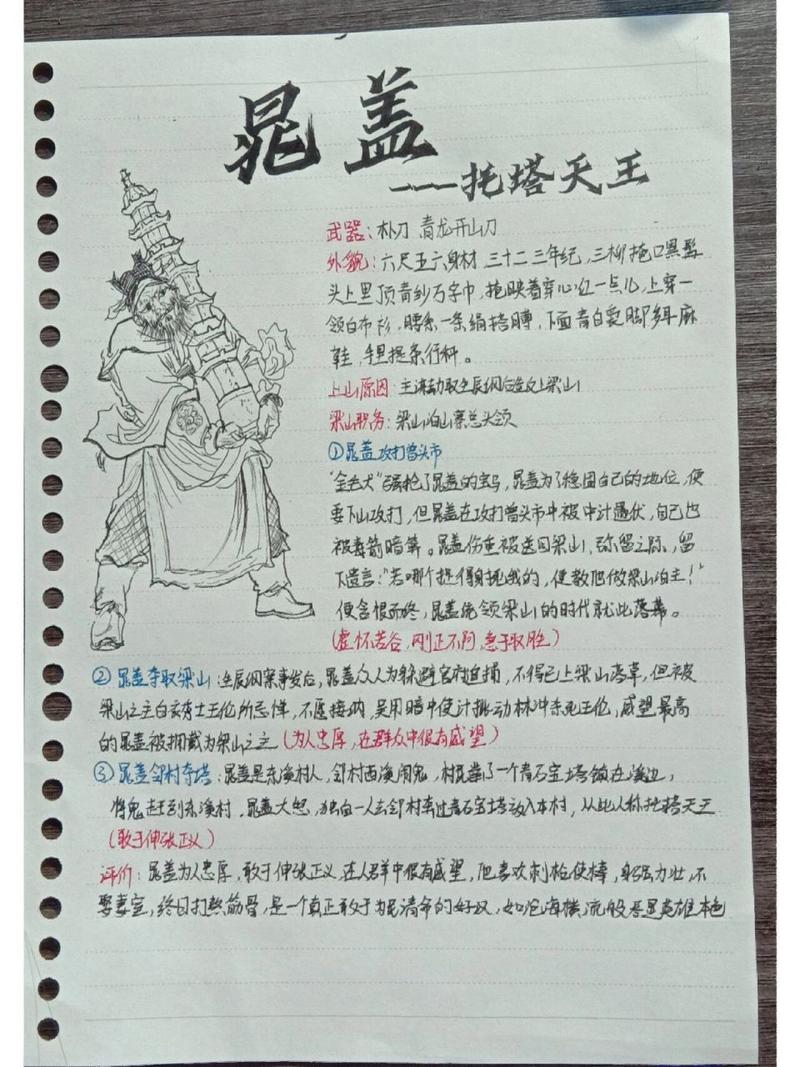 晁盖
---托塔天王
武器：朴刀 青龙开山刀
外貌：六尺五六身材 三十二三年纪，三柳掩口黑髯
头上里顶青纱万字巾，掩映着穿心红一点儿，上穿一
领白布衫，腰系一条绢搭膊，下面青白裹脚多耳麻
鞋，手里提条行杆。
上山原因：主谋劫取生辰纲后逃上梁山
梁山职务：梁山泊山寨总头领
①晁盖攻打曾头市
"金毛犬"强抢了晁盖的宝马，晁盖为了稳固自己的地位，便
要下山攻打，但晁盖在攻打曾头市中被中计遇伏，自己也
被毒箭暗算。晁盖伤重被送回梁山，弥留之际，留
下遗言："若哪个捉得射死我的，便教他做梁山泊主！"
便含恨而终，晁盖统领梁山的时代就此落幕。
（虚怀若谷，刚正不阿，急于取胜）
②晁盖夺取梁山：生辰纲案事发后，晁盖众人为躲避官府追捕，不得已上梁山落草，但被
梁山之主白衣秀士王伦所忌惮，不愿接纳，吴用暗中使计挑动林冲杀死王伦，威望最高
的晁盖被拥戴为梁山之主（为人忠厚，在群众中很有威望）
③晁盖邻村夺塔：晁盖是东溪村人，邻村西溪闹鬼，村民凿了一个青石宝塔镇在溪边，
将鬼赶到东溪村，晁盖大怒，独自一人去邻村夺过青石宝塔放入本村，从此人称托塔天王
（敢于伸张正义）
评价：晁盖为人忠厚，敢于伸张正义，在人群中很有威望，他喜欢刺枪使棒，身强力壮，不
娶妻室，终日打熬筋骨，是一个真正敢于为民请命的好汉，如沧海横流般尽显英雄本色